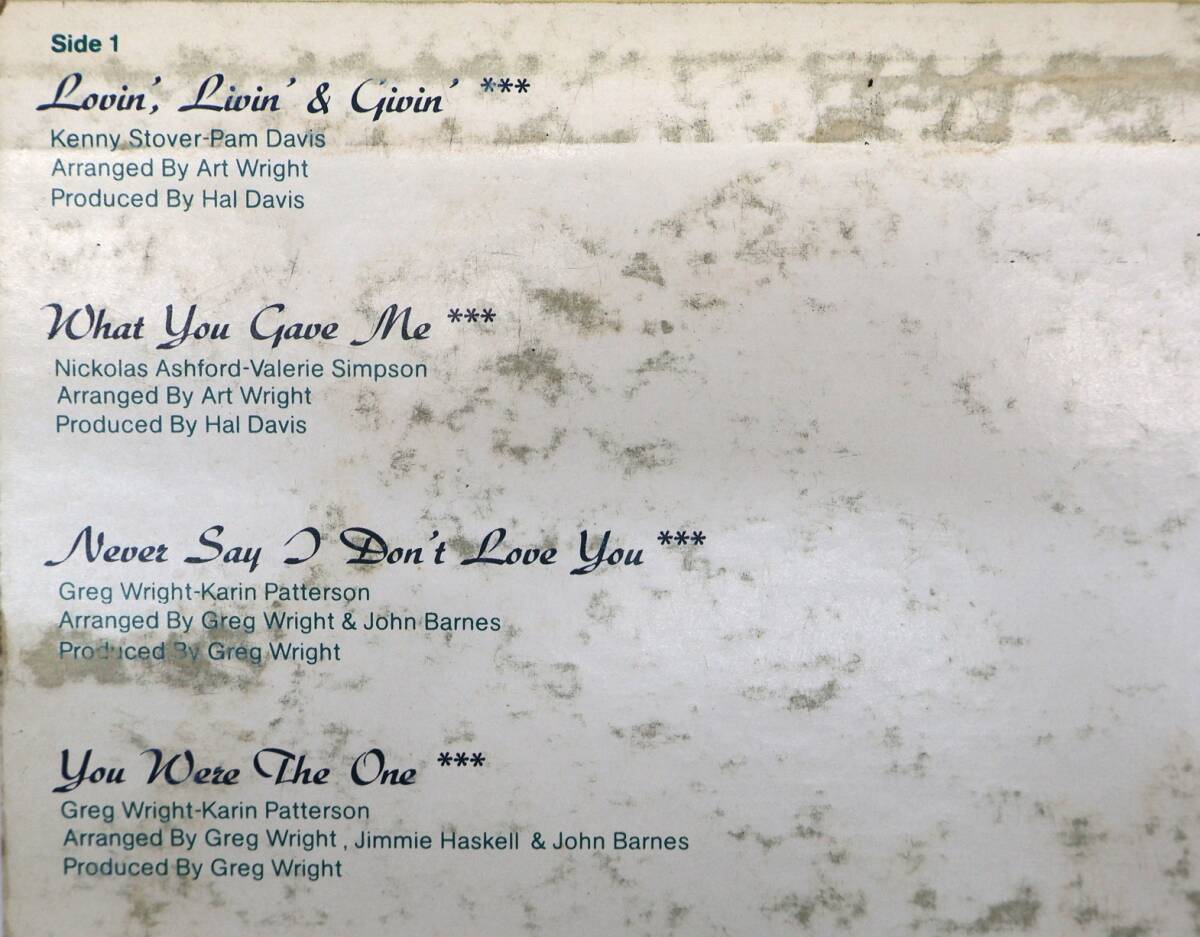 Side 1
Lovin', Livin' & Givin' ***
Kenny Stover-Pam Davis
Arranged By Art Wright
Produced By Hal Davis
What You Gave Me ***
Nickolas Ashford-Valerie Simpson
Arranged By Art Wright
Produced By Hal Davis
Never Say I Don't Love You ***
Greg Wright-Karin Patterson
Arranged By Greg Wright & John Barnes
Produced By Greg Wright
You Were The One ***
Greg Wright-Karin Patterson
Arranged By Greg Wright, Jimmie Haskell & John Barnes
Produced By Greg Wright